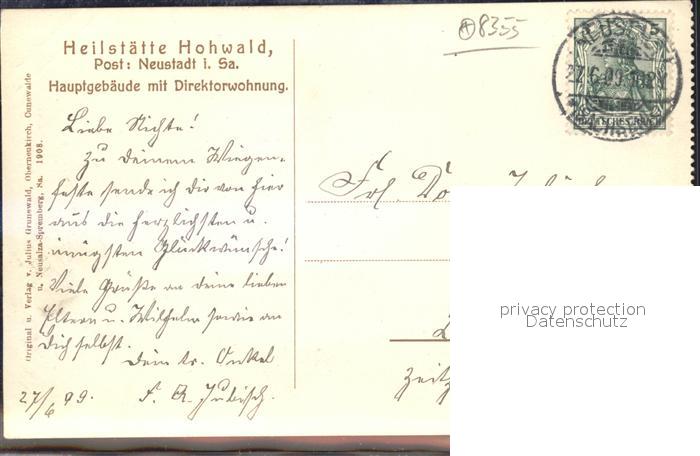 8355
Heilstätte Hohwald,
Post: Neustadt i. Sa.
Hauptgebäude mit Direktorwohnung.
Original u. Verlag v. Julius Grunewald, Oberneukirch, Cunewalde
u. Neusalza-Spremberg, Sa. 1908.
DEUTSCHES REICH
Liebe Nichte!
Zu Deinem Wiegen-
feste sende ich Dir von hier
aus die herzlichsten u.
innigsten Glückwünsche!
Viele Grüße an deine lieben
Eltern u. Wilhelm sowie an
Dich selbst.
Dein tr. Onkel
27/6 09.
Frl.
Zeitz
privacy protection
Datenschutz